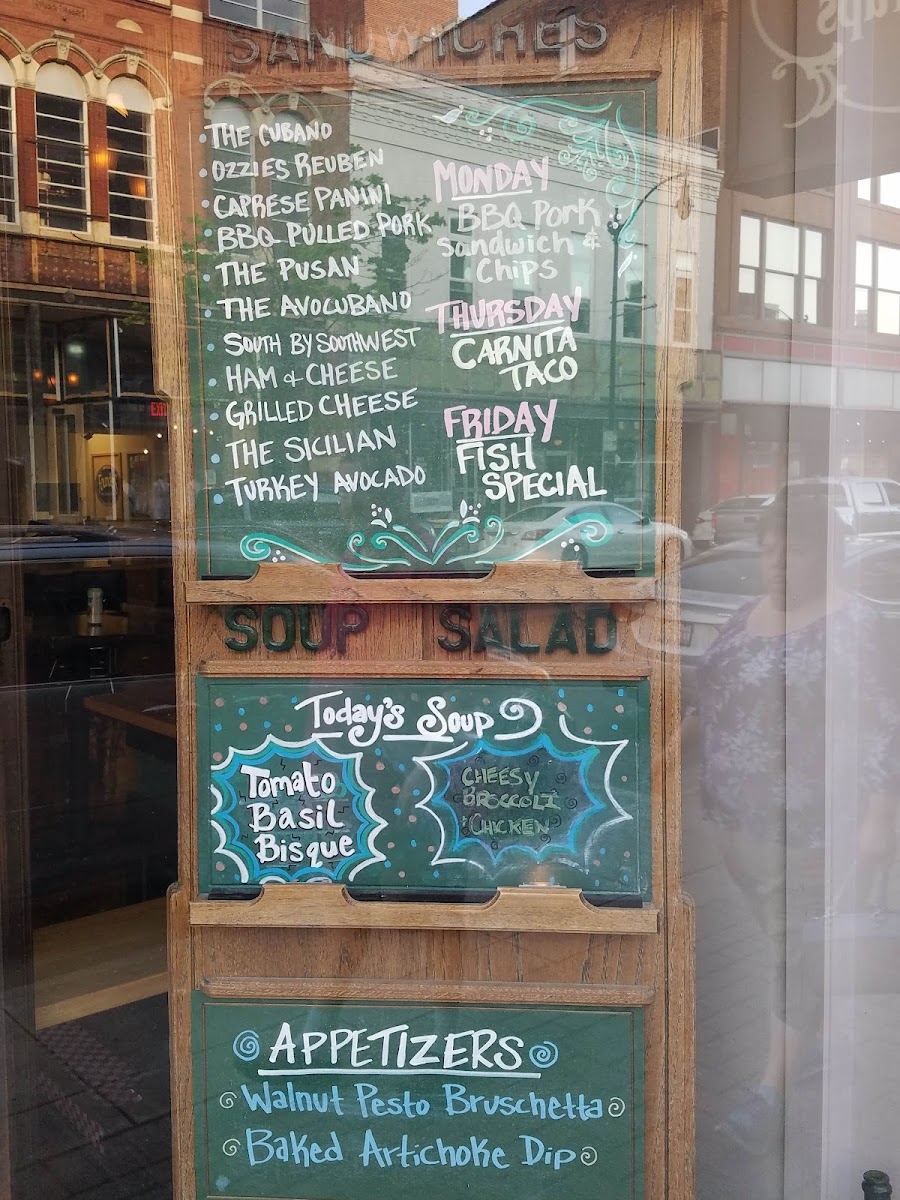 SANDWICHES
THE CUBANO
OZZIES REUBEN
CAPRESE PANINI
BBQ PULLED PORK
THE PUSAN
THE AVOCUBANO
SOUTH BY SOUTHWEST
HAM & CHEESE
GRILLED CHEESE
THE SICILIAN
TURKEY AVOCADO
MONDAY
BBQ PORK
Sandwich &
CHIPS
THURSDAY
CARNITA
TACO
FRIDAY
FISH
SPECIAL
SOUP SALAD
Today's Soup
Tomato
Basil
Bisque
CHEESY
BROCCOLI
CHICKEN
APPETIZERS
Walnut Pesto Bruschetta
Baked Artichoke Dip